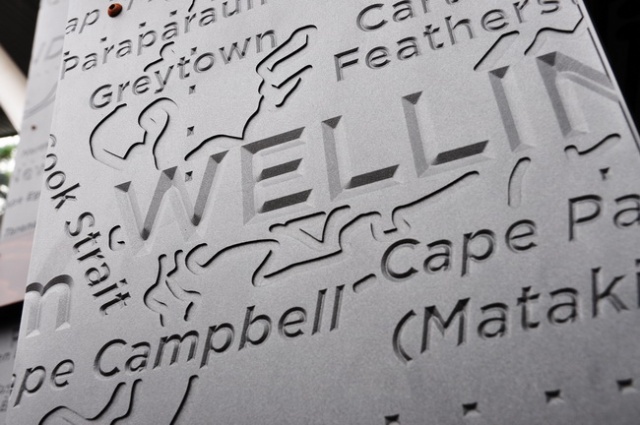 Paraparau
Greytown
Feathers
WELLIN
ook Strait
Cape Pa
pe Campbell
(Mataki
m